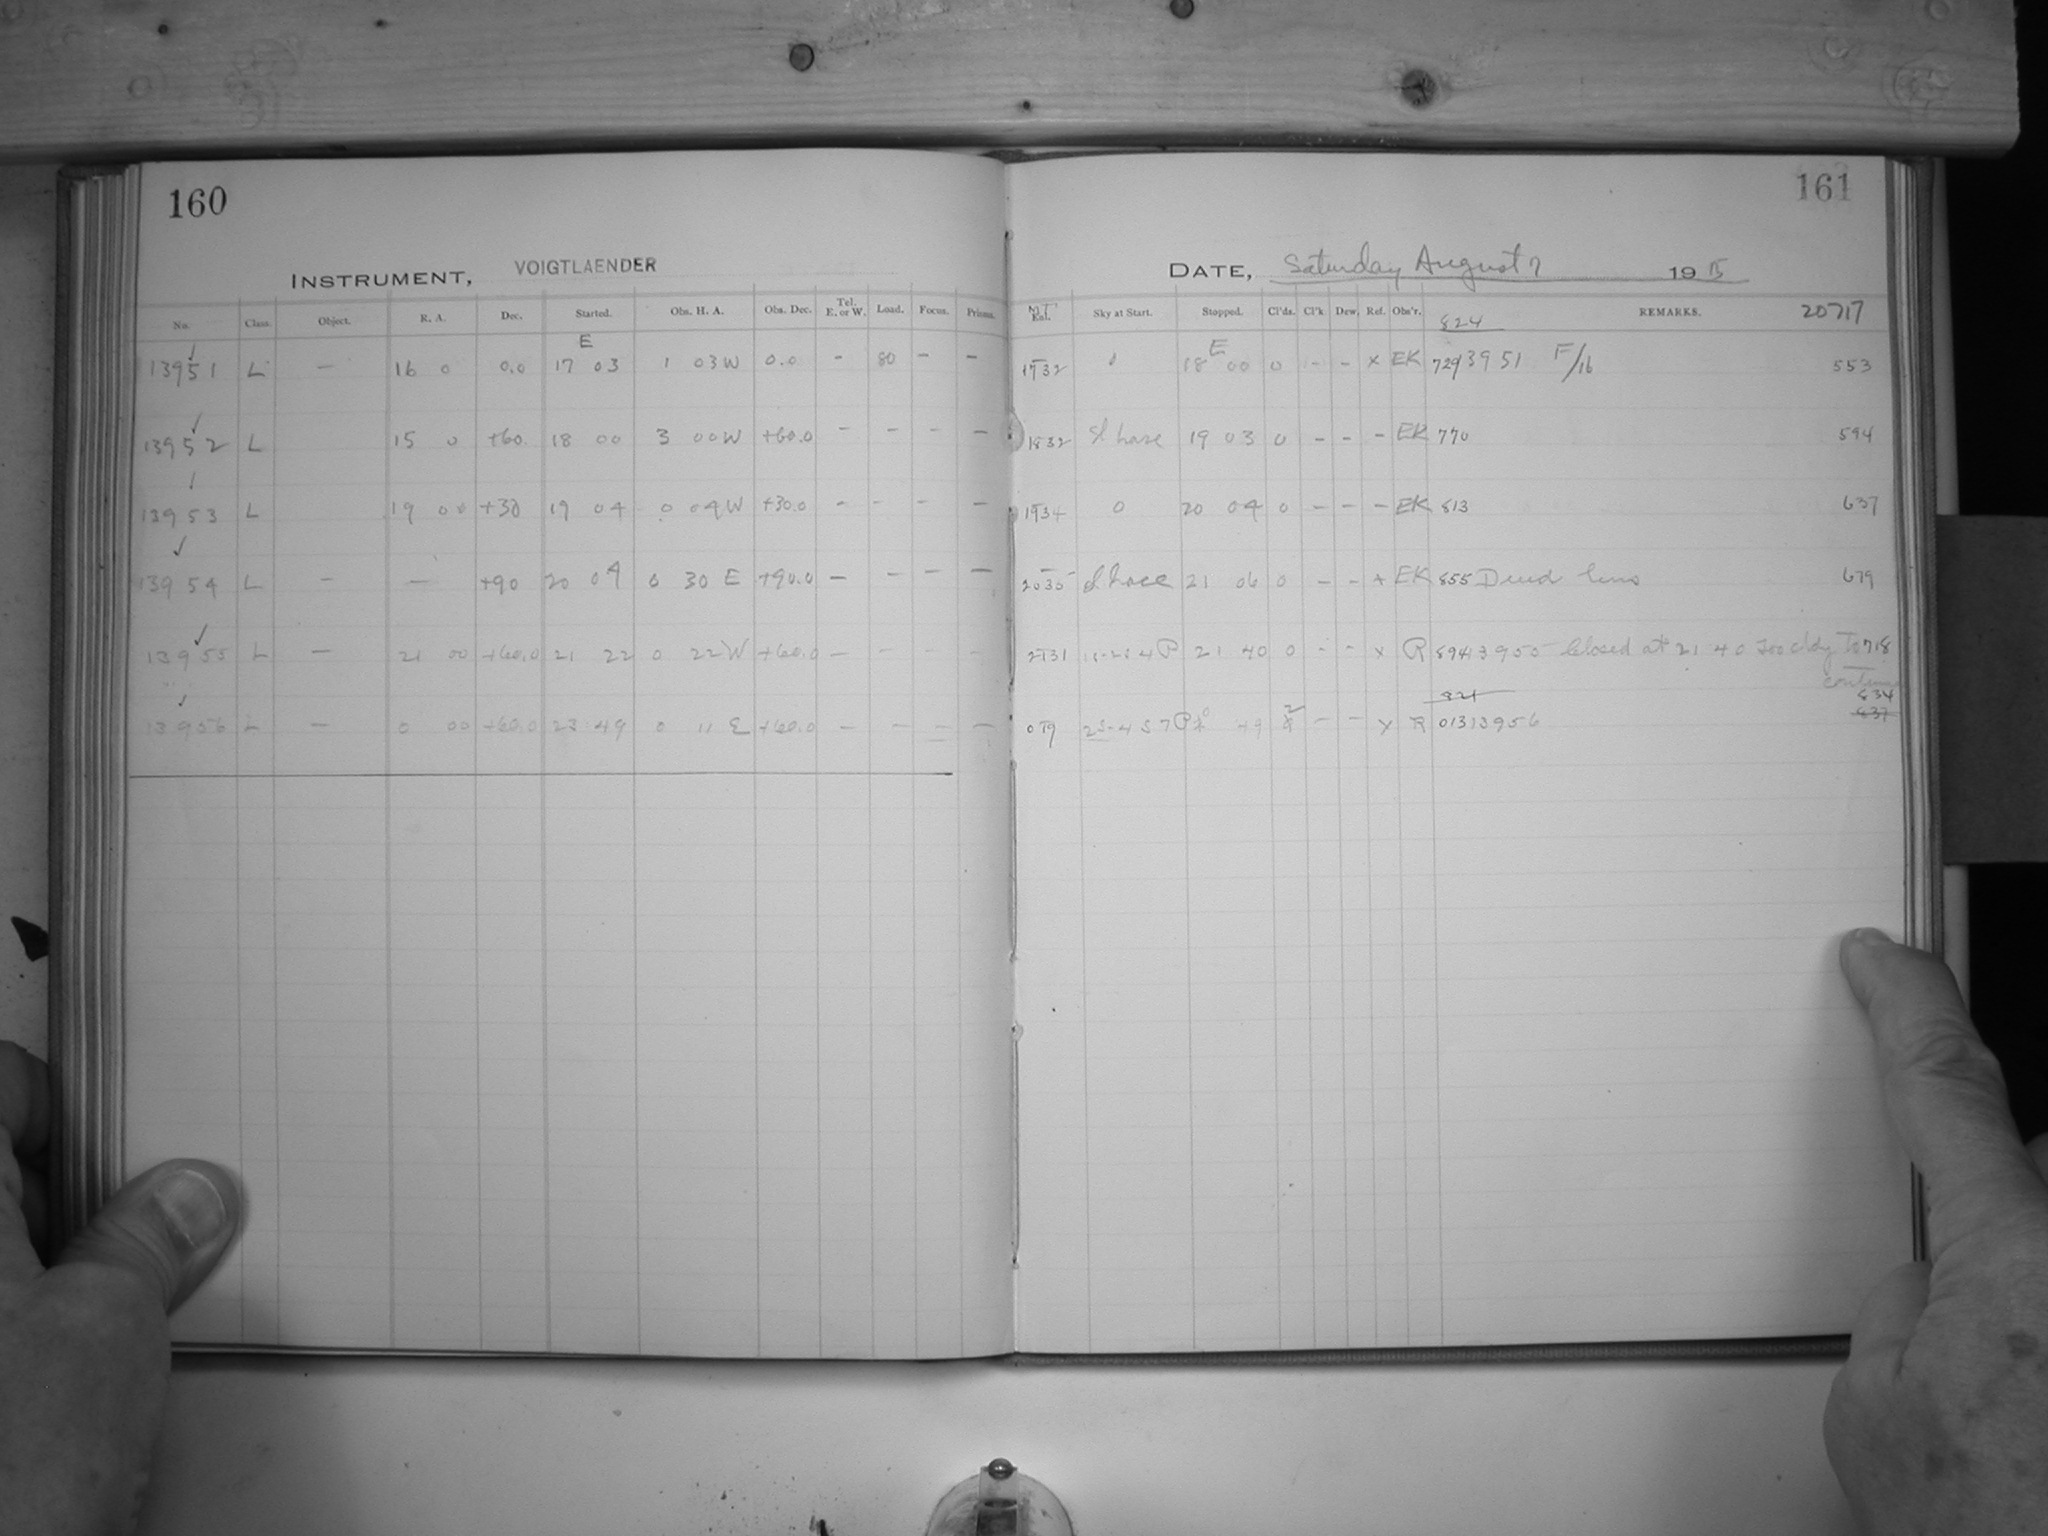 160
INSTRUMENT, VOIGTLAENDER
No. Class. Object. R. A. Dec. Started. Obs. H. A. Obs. Dec. Tel. E. or W. Load. Focus. Prisms.
E
13951 L — 16 0 0.0 17 03 1 03W 0.0 - 80 - -
13952 L 15 0 +60. 18 00 3 00W +60.0 - - - -
13953 L 19 00 +30 19 04 0 04W +30.0 - - - -
13954 L — — +90 20 04 0 30 E +90.0 - - - -
13955 L — 21 00 +60.0 21 22 0 22W +60.0 - - - -
13956 L — 0 00 +60.0 23 49 0 11 E +60.0 - - - -
161
DATE, Saturday August 7 1915
Sky at Start. Stopped. Cl'ds. Cl'k Dew. Ref. Obs'r. REMARKS. 20717
824
E
1732 0 18 00 0 - - x EK 729 13951 F/16 553
1832 Sl haze 19 03 0 - - - EK 770 594
1934 0 20 04 0 - - - EK 813 637
2035 Sl haze 21 06 0 - - + EK 855 Dewed lens 679
2131 P 21 40 0 - - x R 894 13955 Closed at 21 40 Too cldy to 718
continue
821 834
019 49 2 - - x R 013 13956 837